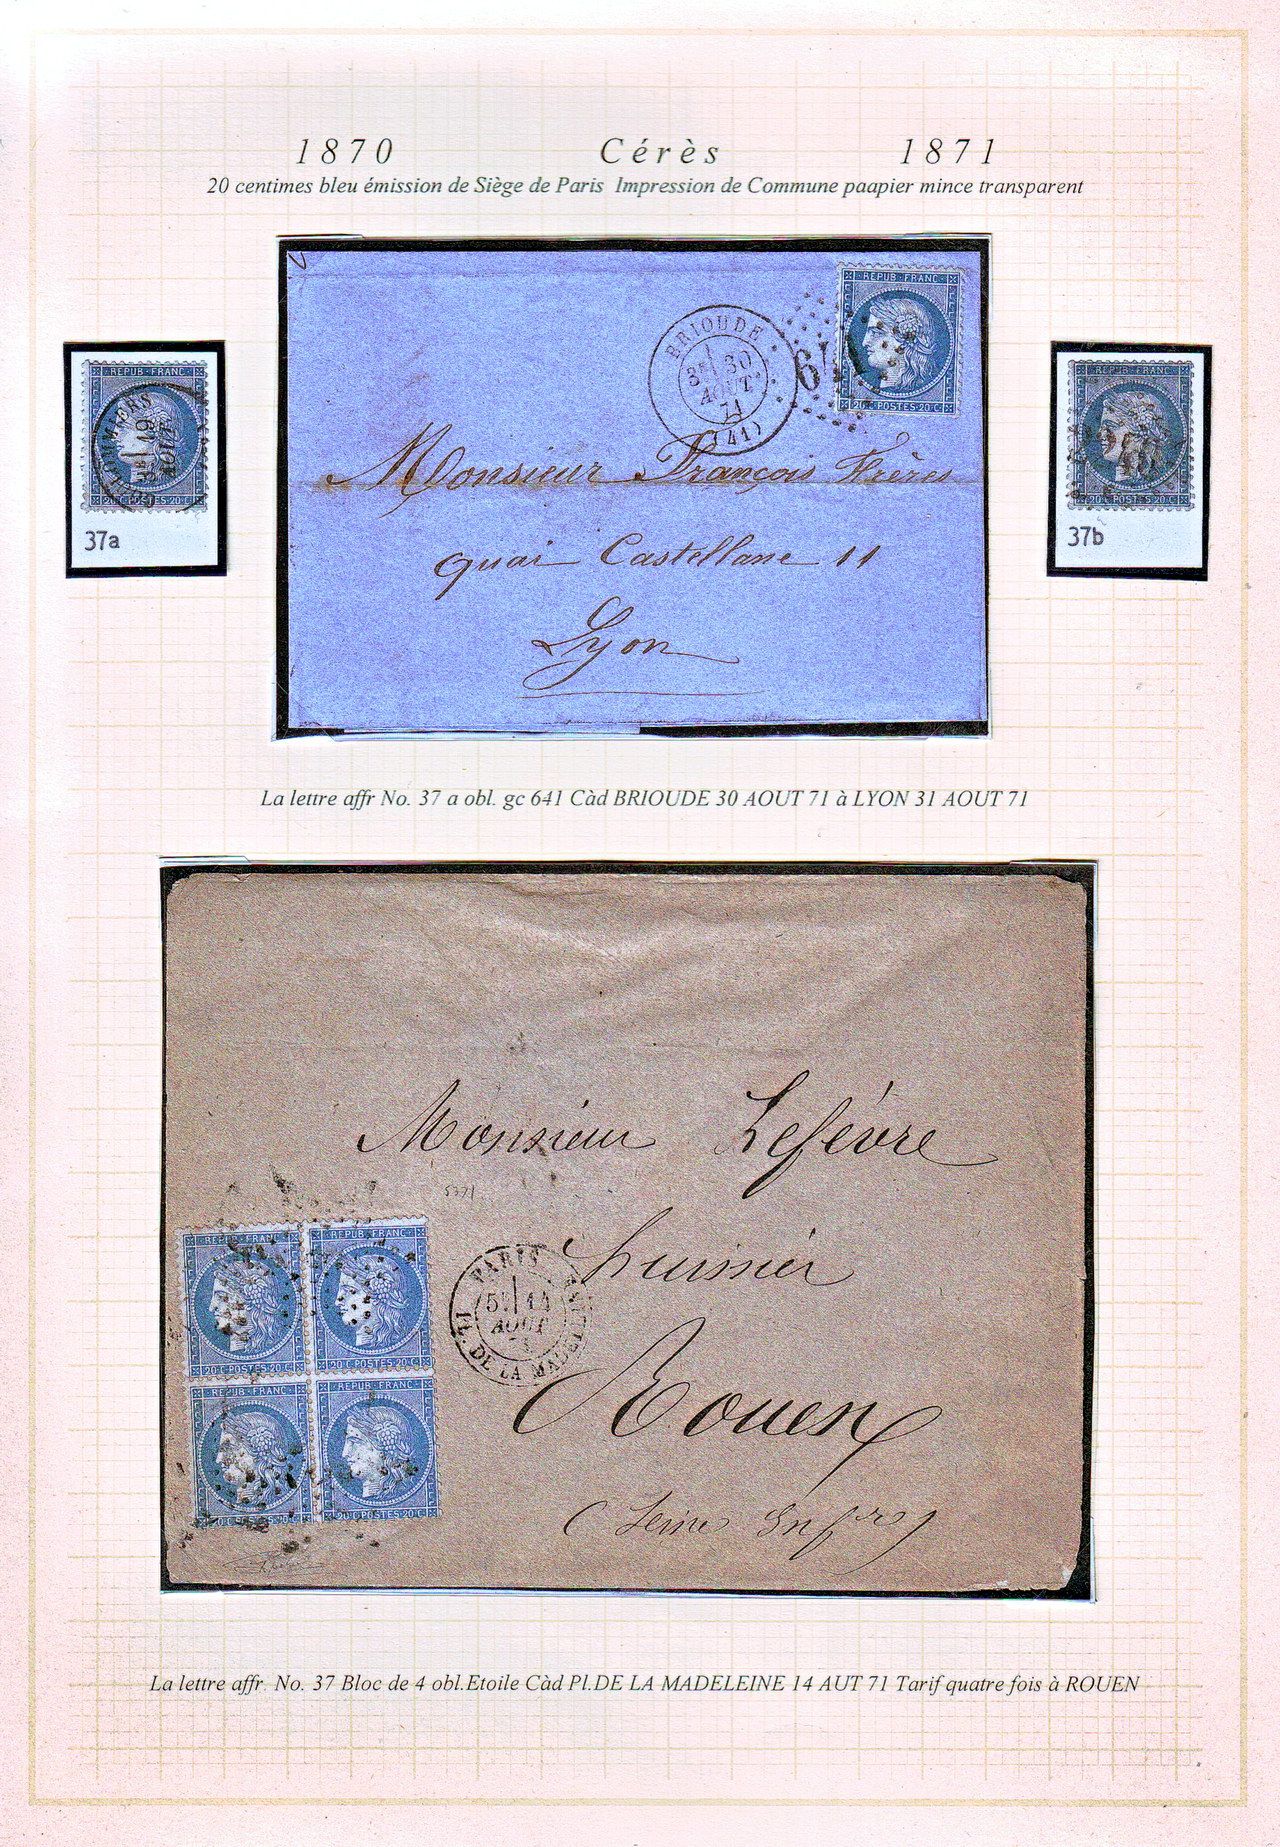 1870 Cérès 1871
20 centimes bleu émission de Siège de Paris Impression de Commune paapier mince transparent
REPUB·FRANC·
20·C·POSTES·20·C·
19
AOUT
37a
BRIOUDE
3E 30
AOUT
71
(41)
641
REPUB·FRANC·
20·C·POSTES·20·C·
Monsieur François Frères
quai Castellane 11
Lyon
REPUB·FRANC·
20·C·POSTES·20·C·
37b
La lettre affr No. 37 a obl. gc 641 Càd BRIOUDE 30 AOUT 71 à LYON 31 AOUT 71
Monsieur Lefévre
huissier
Rouen
(Seine Infre)
REPUB·FRANC·
20·C·POSTES·20·C·
REPUB·FRANC·
20·C·POSTES·20·C·
REPUB·FRANC·
20·C·POSTES·20·C·
REPUB·FRANC·
20·C·POSTES·20·C·
PARIS
5E 14
AOUT
71
PL. DE LA MADELEINE
La lettre affr. No. 37 Bloc de 4 obl.Etoile Càd Pl.DE LA MADELEINE 14 AUT 71 Tarif quatre fois à ROUEN